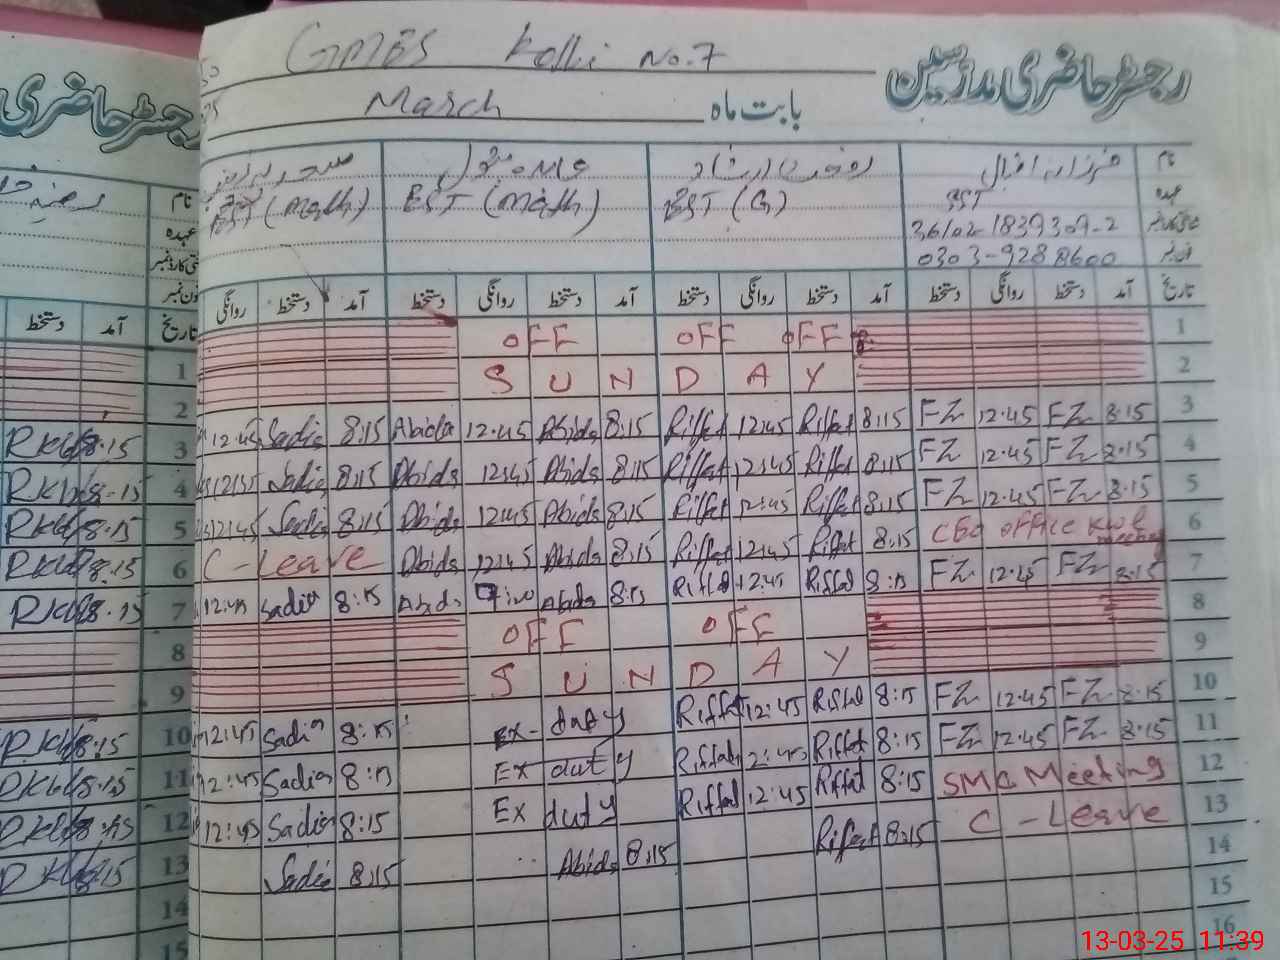 GMES Kolli No.7
رجسٹر حاضری مدرسین
March بابت ماہ
رجسٹر حاضری
نام
EST (Math) EST (Math) EST (G) SST عہدہ
36102-1839309-2
0303-9288600 فون نمبر
تاریخ آمد دستخط روانگی دستخط آمد دستخط روانگی دستخط آمد دستخط روانگی دستخط آمد دستخط روانگی
نام
عہدہ
تاریخ آمد دستخط
OFF OFF OFF 1
S U N D A Y 2
12:45 Sadia 8:15 Abida 12:45 Abida 8:15 Riffat 12:45 Riffat 8:15 FZ 12:45 FZ 8:15 3
Sadia 8:15 Abida 12:45 Abida 8:15 Riffat 12:45 Riffat 8:15 FZ 12:45 FZ 8:15 4
12:45 Sadia 8:15 Abida 12:45 Abida 8:15 Riffat 12:45 Riffat 8:15 FZ 12:45 FZ 8:15 5
C-Leave Abida 12:45 Abida 8:15 Riffat 12:45 Riffat 8:15 CEO office meeting 6
12:45 Sadia 8:15 Abida Abida 8:15 Riffat 12:45 Riffat 8:15 FZ 12:45 FZ 8:15 7
OFF OFF 8
S U N D A Y 9
12:45 Sadia 8:15 Ex-duty Riffat 12:45 Riffat 8:15 FZ 12:45 FZ 8:15 10
12:45 Sadia 8:15 Ex duty Riffat 12:45 Riffat 8:15 FZ 12:45 FZ 8:15 11
12:45 Sadia 8:15 Ex duty Riffat 12:45 Riffat 8:15 SMC Meeting 12
Sadia 8:15 Abida 8:15 Riffat 8:15 C-Leave 13
14
15
16
1
2
8:15 3
8:15 4
8:15 5
8:15 6
8:15 7
8
9
8:15 10
8:15 11
8:15 12
8:15 13
14
15
13-03-25 11:39